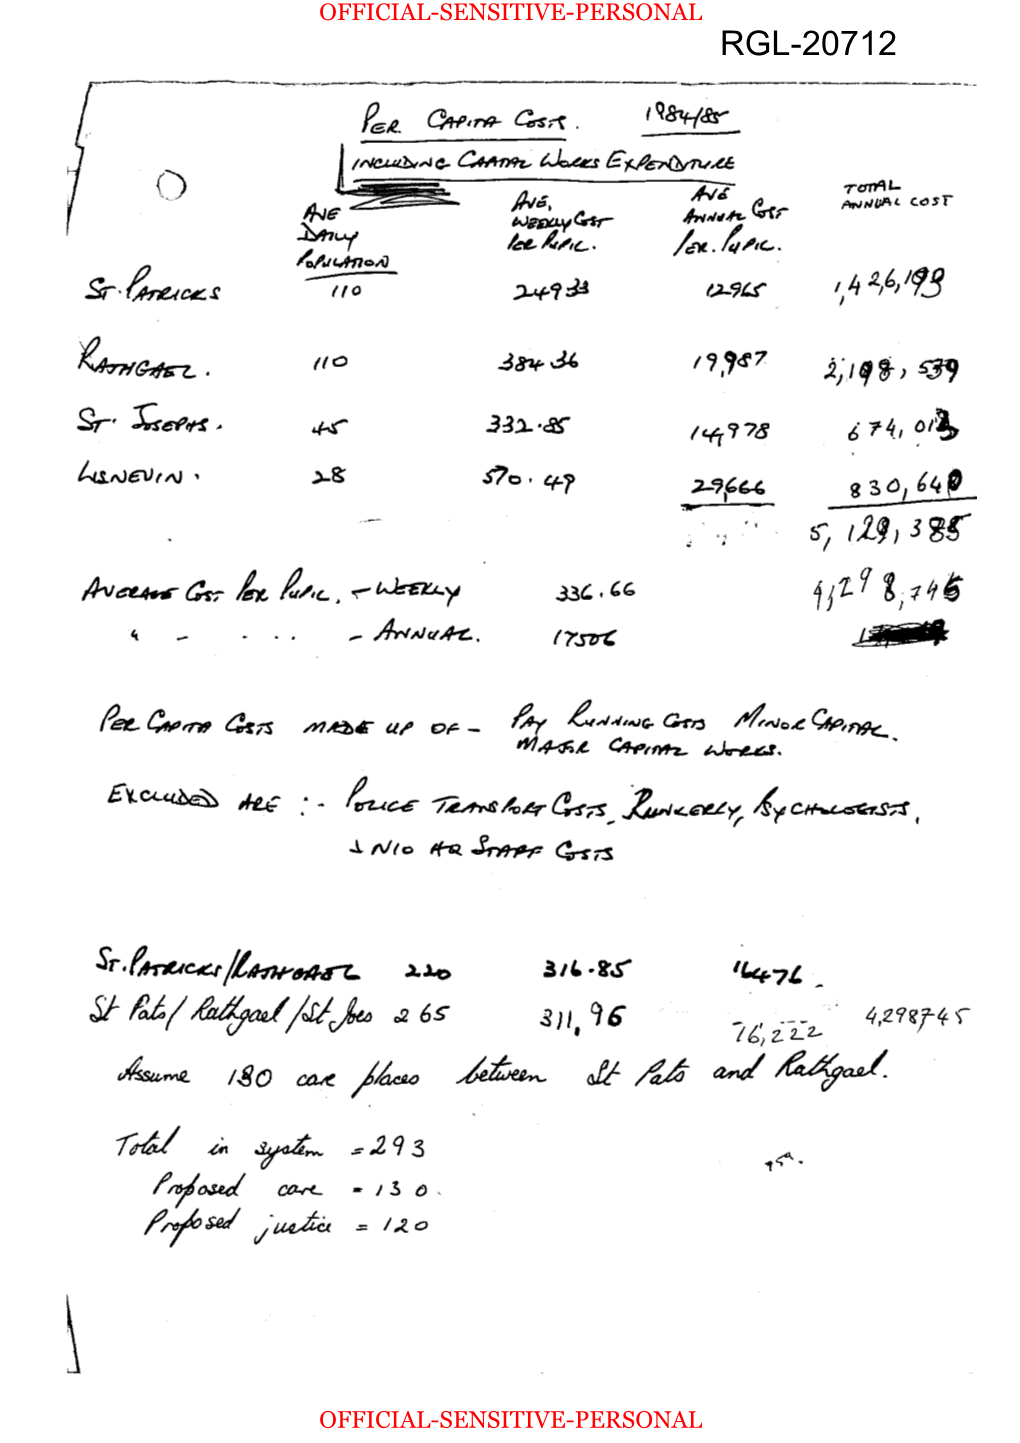 OFFICIAL-SENSITIVE-PERSONAL
RGL-20712
PER CAPITA COSTS. 1984/85
INCLUDING CAPITAL WORKS EXPENDITURE
AVE DAILY POPULATION AVE. WEEKLY COST PER PUPIL. AVE ANNUAL COST PER. PUPIL. TOTAL ANNUAL COST
ST. PATRICKS 110 249 33 12965 1,426,193
RATHGAEL. 110 384 36 19,987 2,198,539
ST. JOSEPHS. 45 332.85 14,978 674,013
LISNEVIN. 28 570.49 29,666 830,640
5,129,385
AVERAGE COST PER PUPIL. - WEEKLY 336.66 4,298,745
" - . ... - ANNUAL. 17506
PER CAPITA COSTS MADE UP OF - PAY RUNNING COSTS MINOR CAPITAL.
MAJOR CAPITAL WORKS.
EXCLUDED ARE :- POLICE TRANSPORT COSTS, RUNKERLY, PSYCHOLOGISTS,
& NIO HQ STAFF COSTS
ST. PATRICKS/RATHGAEL 220 316.85 16476.
St Pats/ Rathgael /St Joes 265 311,96 16,222 4,298745
Assume 130 care places between St Pats and Rathgael.
Total in system = 293
Proposed care = 130.
Proposed justice = 120
OFFICIAL-SENSITIVE-PERSONAL